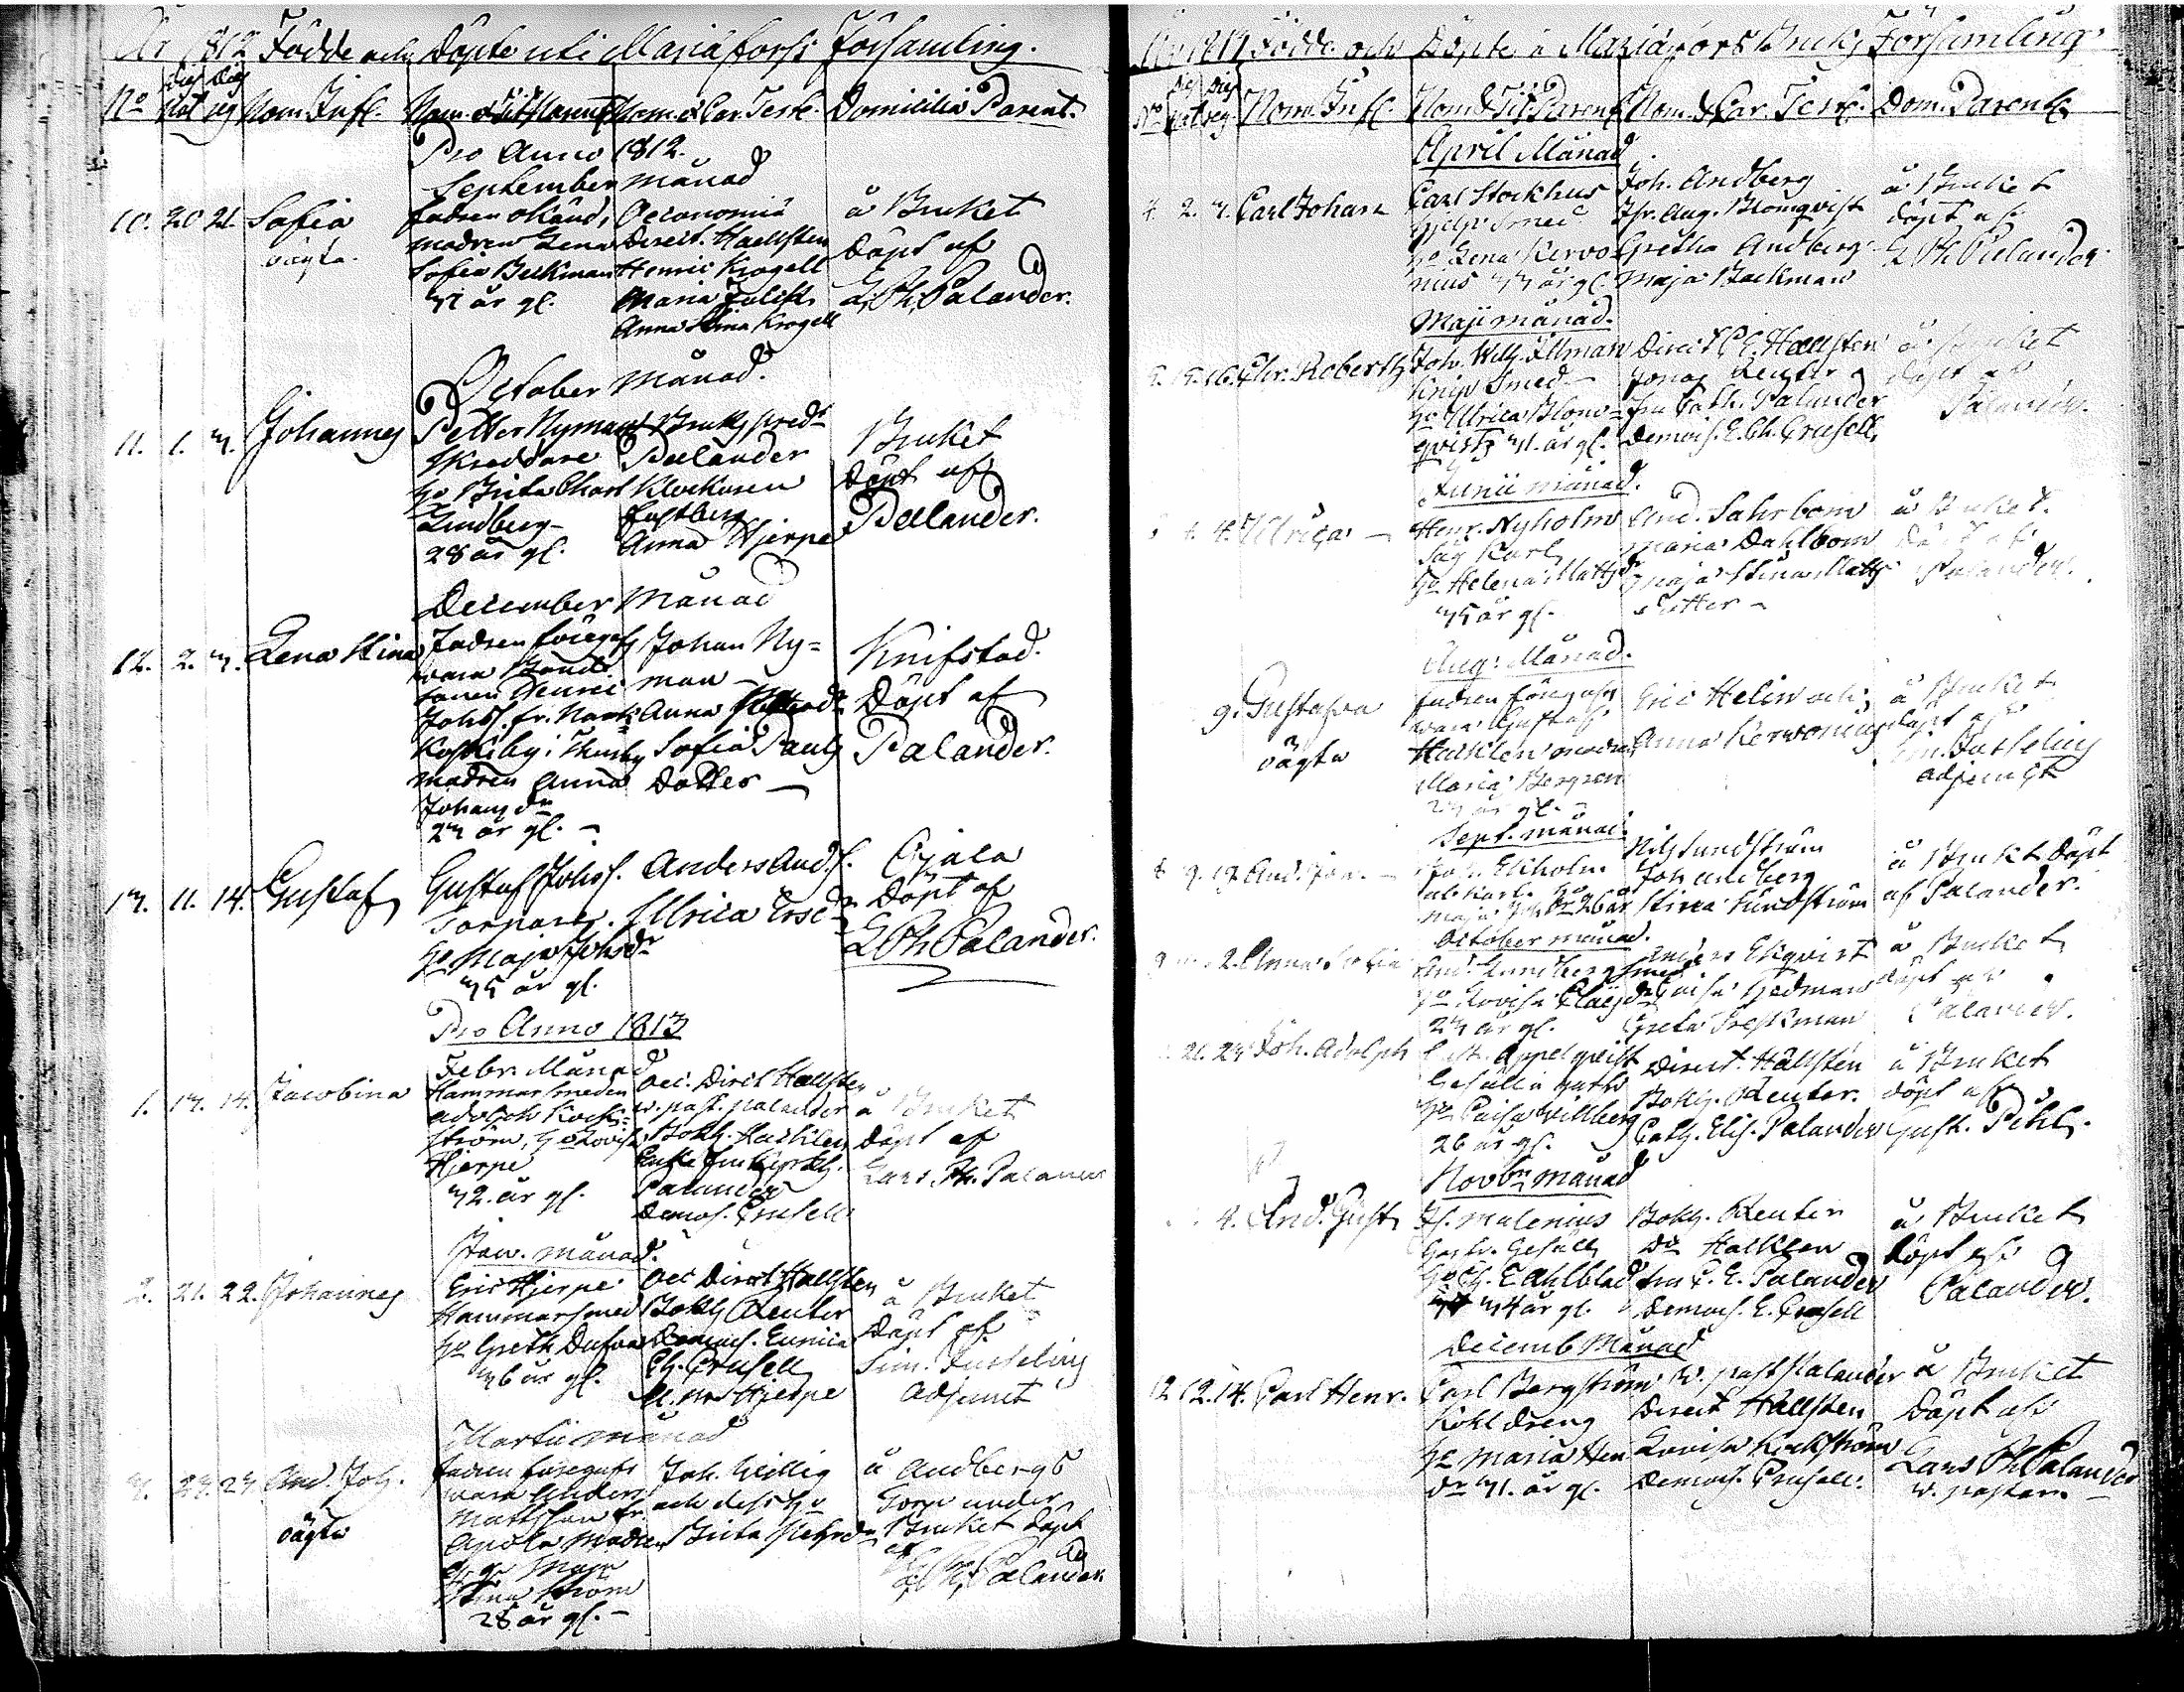 År 1812 Födde och Döpte uti Mariæforss Församling.
No Dies nat Dies reg Nom. Inf. Nom. & Tit. Parent. Nom. & Car. Test. Domicilia Parent.
Pro Anno 1812.
September månad
10. 20 21. Sofia
oägta.
fadren okänd,
modren Lena
Sofia Beckman
31 år gl.
Oeconomiæ
Direct. Haellsten
Henric Krogell
Maria
Anna Stina Krogell
å Bruket
Döpt af
L. Ph. Palander.
October månad.
11. 1. 3. Johannes
Petter Nyman
Skreddare
ho Brita Charl
Lindberg
28 år gl.
Bruks pred.
Palander
Klockaren
Anna Hjerpe
Bruket
Döpt af
Palander.
December Månad
12. 2. 3. Lena Stina
Fadren föregafs
vara Bonde
sonen Henric
Johss. fr.
Koskiby i
modren Anna
Johans dr
23 år gl.
Johan Ny=
man
Anna
Sofia Pauls
Dotter
Knifstad.
Döpt af
Palander.
13. 11. 14. Gustaf
Gustaf Johss.
Torpare.
ho Maja Johsdr
35 år gl.
Anders Andss.
Ulrica Ersdr
Ojala
Döpt af
L Ph Palander.
Pro Anno 1813
Febr. Månad
1. 13. 14. Jacobina
Hammarsmeden
Adolph Kock=
ström, ho Lovisa
Hjerpe
32. år gl.
Oec. Direct Hallsten
v. past. palander
Bokh. Haeklen
Palander
Demois. Crusell
å Bruket
Döpt af
Lars Ph. Palander
Jan. månad.
2. 21. 22. Johannes
Eric Hjerpe
Hammarsmed
ho Greth Dufva
36 år gl.
Oec Direct Hallsten
Bokh Reuter
Demois. Eunica
Ch. Crusell
Hjerpe
å Bruket
Döpt af
Sim. Jusselius
Adjunct
Martii månad
3. 23. 23 And. Joh.
oägta
fadren föregafs
vara Anders
Mattsson fr.
Modren
Maja
Stina Ström
28 år gl.
Joh. Willig
och dess ho
Brita
å Andbergs
Torp under
Bruket Döpt
af
L. Ph. Palander
Födde och Döpte i Mariæfors Bruks Församling
No Dies nat Dies reg. Nom. Inf. Nom & Tit Parent. Nom. & Car. Test. Dom. Parent.
April Månad.
4. 2. 3. Carl Johan
Carl Stockhus
hjelp smed
ho Lena Kervo
nius 33 år gl.
Joh. Andberg
Aug. Blomqvist
Gretha Andberg
Maja Backman
å Bruket
döpt af
L Ph Palander
Maji månad.
5. 15. 16. Chr. Roberth
Joh. Wilh. Ullman
Knip Smed
ho Ulrica Blom=
qvist 31. år gl.
Direct C E. Haellsten
Jonas Reuter
fru Cath. Palander
Demois. E. Ch. Crusell
å Bruket
Döpt af
Palander.
Junii månad.
4. Ulrica
Henr. Nyholm
Såg Karl
ho Helena Mattsdr
35 år gl.
And. Sahrbom
Maria Dahlbom
Maja Stina Matts
dotter
å Bruket.
Döpt af
Palander.
Aug: Månad.
9. Gustafva
oägta
fadren föregafs
vara Gustaf
Haeklen modren
Maria Bergren
23 år gl.
Eric Helin och
Anna Kervonius
å Bruket
döpt af
Sim. Jusselius
adjunct
Sept. månad.
8 9. 19. And. Joh.
Joh. Ekholm
ho
Maja 26 år
Nils Lundström
Joh Andberg
Stina Lundström
å Bruket Döpt
af Palander.
October månad.
2. Anna Sofia
And. Lundberg smed
ho Lovisa
23 år gl.
Anders Ekqvist
Caisa Hedman
Greta Freskman
å Bruket
döpt af
Palander.
21. 23 Joh. Adolph
Appelqvist
Gesälle
ho Caisa Willberg
26 år gl.
Direct. Hällsten
Bokh. Reuter.
Cath. Elis. Palander
å Bruket
döpt af
Gust. Pihl.
Novbr månad
4. And. Gust.
Malenius
Gesäll
ho Ch. E Ahlblad
34 år gl.
Bokh. Reuter
Do Haeklen
fru C. E. Palander
Demois. E. Crusell
å Bruket
Döpt af
Palander.
Decemb Månad
12 12. 14. Carl Henr.
Carl Bergström
Kohl dreng
ho Maria Hen
dr 31. år gl.
v. past Palander
Direct Hällsten
Lovisa Kockström
Demois. Crusell.
å Bruket
Döpt af
Lars Ph Palander
v. pastor.